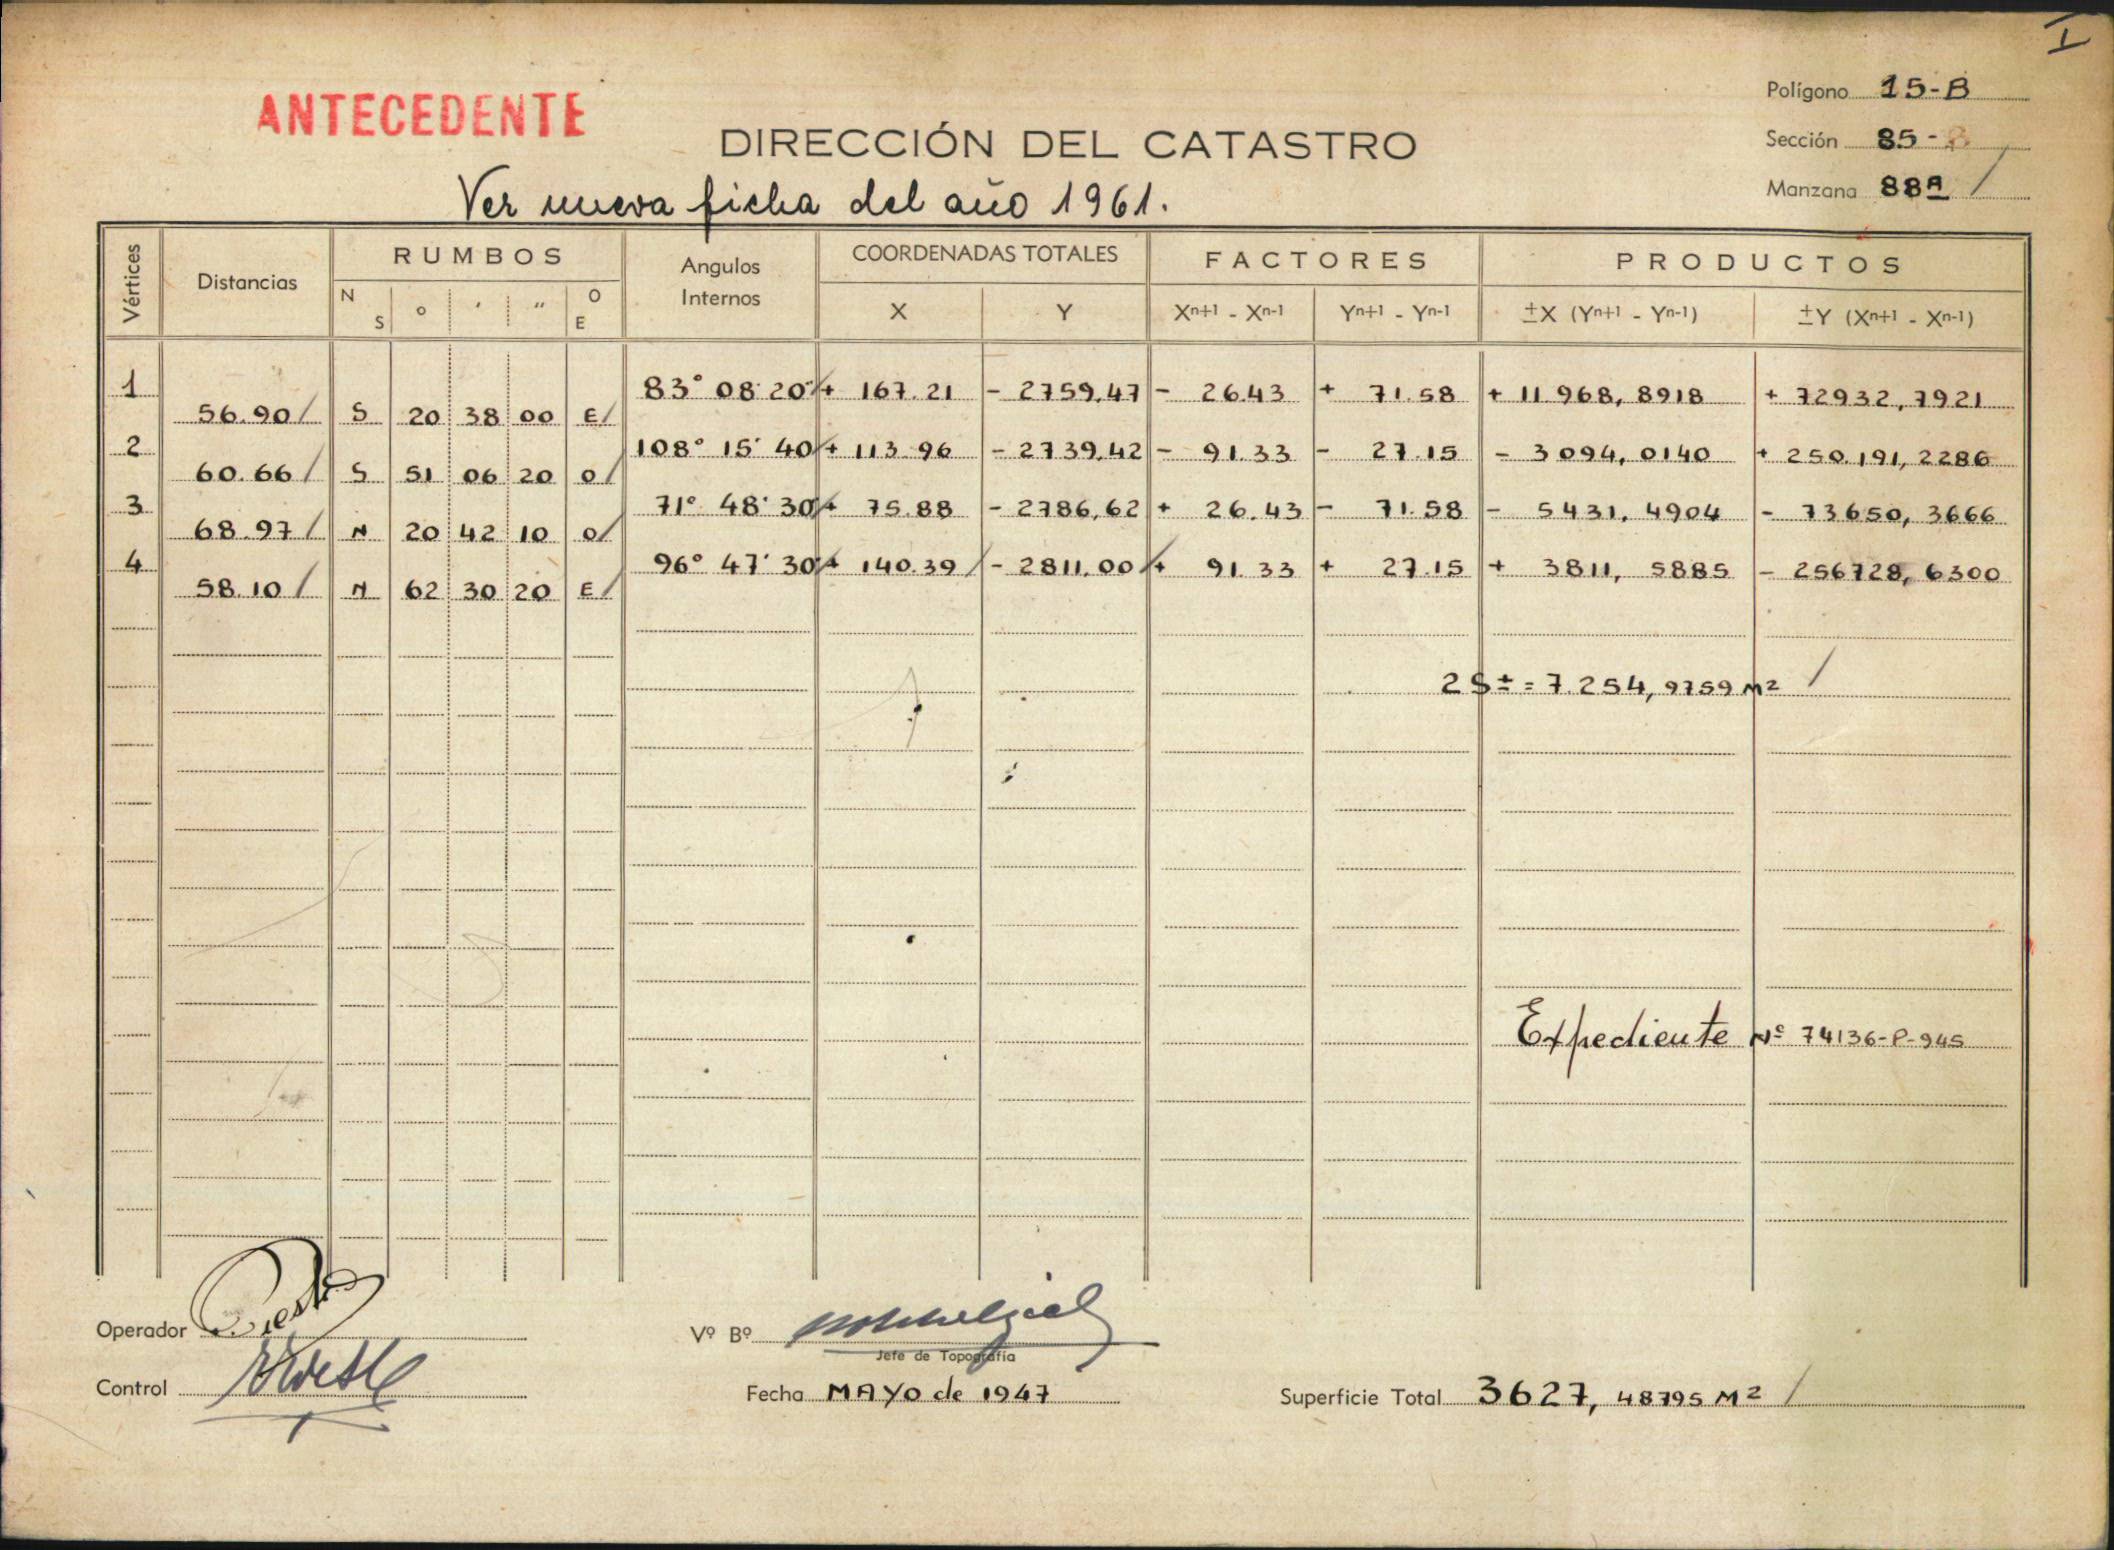 I
ANTECEDENTE
DIRECCIÓN DEL CATASTRO
Ver nueva ficha del año 1961.
Polígono 15-B
Sección 85-B
Manzana 88A /
Vértices Distancias RUMBOS Angulos Internos COORDENADAS TOTALES FACTORES PRODUCTOS
N S o ' " O E X Y Xn+1 - Xn-1 Yn+1 - Yn-1 ±X (Yn+1 - Yn-1) ±Y (Xn+1 - Xn-1)
1 83° 08' 20" + 167.21 - 2759,47 - 26.43 + 71.58 + 11968,8918 + 72932,7921
56.90 / S 20 38 00 E /
2 108° 15' 40 + 113.96 - 2739,42 - 91.33 - 27.15 - 3094,0140 + 250.191,2286
60.66 / S 51 06 20 O /
3 71° 48' 30 + 75.88 - 2786,62 + 26.43 - 71.58 - 5431,4904 - 73650,3666
68.97 / N 20 42 10 O /
4 96° 47' 30 + 140.39 / - 2811,00 / + 91.33 + 27.15 + 3811,5885 - 256728,6300
58.10 / N 62 30 20 E /
2S± = 7.254,9759 M2 /
Expediente Nº 74136-P-945
Operador
Vº Bº
Jefe de Topografía
Control
Fecha MAYO de 1947
Superficie Total 3627,48795 M2 /